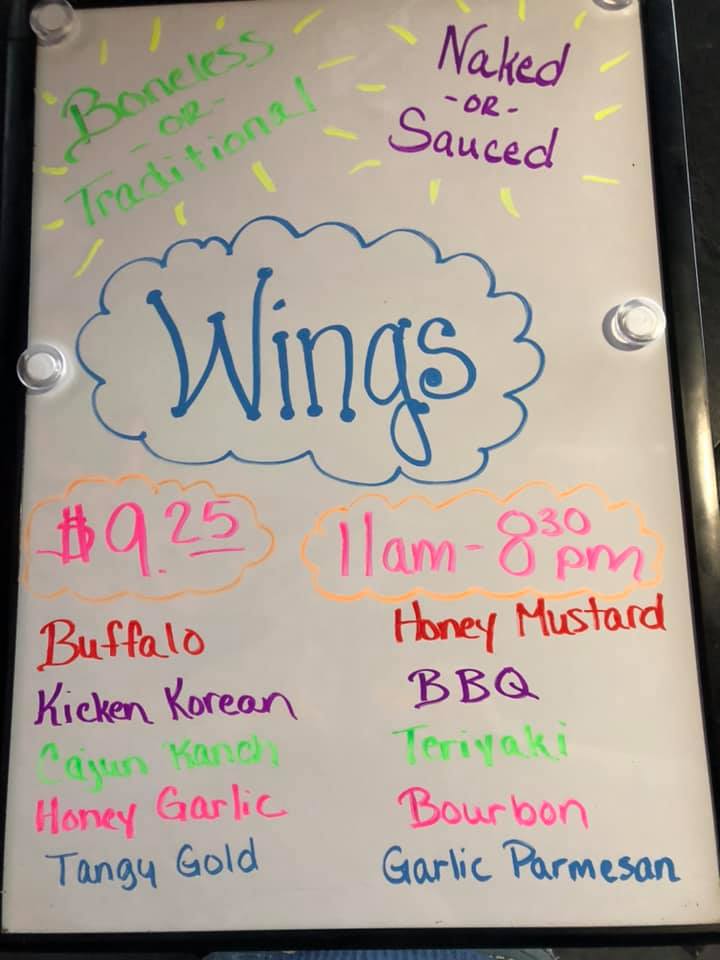 Boneless
-OR-
Traditional
Naked
-OR-
Sauced
Wings
$9.25
11am-830pm
Buffalo
Kicken Korean
Cajun Ranch
Honey Garlic
Tangy Gold
Honey Mustard
BBQ
Teriyaki
Bourbon
Garlic Parmesan